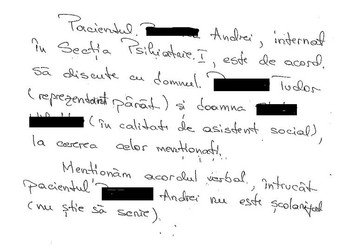 Pacientul Andrei, internat
în Secția Psihiatrie I, este de acord
să discute cu domnul Tudor
(reprezentant părât) și doamna
(în calitate de asistent social),
la cererea celor menționați.
Menționăm acordul verbal, întrucât
pacientul Andrei nu este școlarizat
(nu știe să scrie).